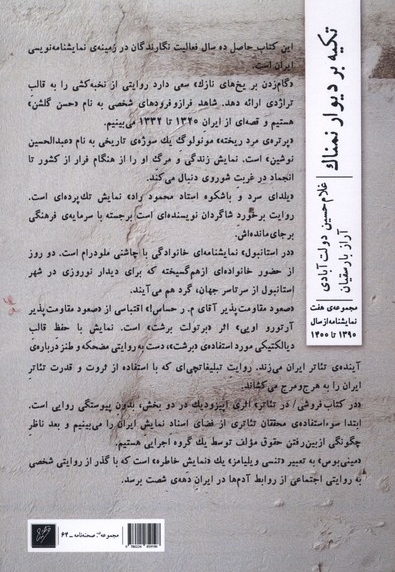 تکیه بر دیوار نمناک
غلامحسین دولت‌آبادی
آراز بارسقیان
مجموعه‌ی هفت
نمایشنامه از سال
۱۳۹۰ تا ۱۴۰۰
این کتاب حاصل ده سال فعالیت نگارندگان در زمینه‌ی نمایشنامه‌نویسی
ایران است.
«گام‌زدن بر یخ‌های نازک» سعی دارد روایتی از نخبه‌کشی را به قالب
تراژدی ارائه دهد. شاهد فرازوفرودهای شخصی به نام «حسن گلشن»
هستیم و قصه‌ای از ایران ۱۳۲۰ تا ۱۳۳۲ می‌بینیم.
«پرتره‌ی مرد ریخته» مونولوگ یک سوژه‌ی تاریخی به نام «عبدالحسین
نوشین» است. نمایش زندگی و مرگ او را از هنگام فرار از کشور تا
انجماد در غربت شوروی دنبال می‌کند.
«یلدای سرد و باشکوه استاد محمود راد» نمایش تک‌پرده‌ای است.
روایت برخورد شاگردان نویسنده‌ای است برجسته با سرمایه‌ی فرهنگی
برجای‌مانده‌اش.
«در استانبول» نمایشنامه‌ای خانوادگی با چاشنی ملودرام است. دو روز
از حضور خانواده‌ای ازهم‌گسیخته که برای دیدار نوروزی در شهر
استانبول از سرتاسر جهان، گرد هم می‌آیند.
«صعود مقاومت‌پذیر آقای م. ر حساس!» اقتباسی از «صعود مقاومت‌پذیر
آرتورو اویی» اثر «برتولت برشت» است. نمایش با حفظ قالب
دیالکتیکی مورد استفاده‌ی «برشت» دست به روایتی مضحکه و طنز درباره‌ی
آینده‌ی تئاتر ایران می‌زند. روایت تبلیغاتچی‌ای که با استفاده از ثروت و قدرت تئاتر
ایران را به هرج‌ومرج می‌کشاند.
«در کتاب‌فروشی / در تئاتر» اثری اپیزودیک در دو بخش، بدون پیوستگی روایی است.
ابتدا سواستفاده‌ی محققان تئاتری از فضای اسناد نمایش ایران را می‌بینیم و بعد ناظر
چگونگی ازبین‌رفتن حقوق مؤلف توسط یک گروه اجرایی هستیم.
«مینی‌بوس» به تعبیر «تنسی ویلیامز» یک «نمایش خاطره» است که با گذر از روایتی شخصی
به روایتی اجتماعی از روابط آدم‌ها در ایران دهه‌ی شصت برسد.
مجموعه: صحنه‌نامه - ۶۲